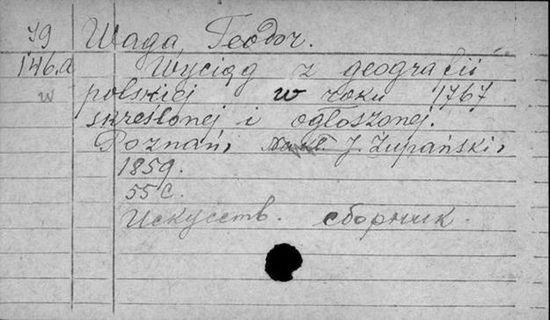 79 Waga, Teodor.
146.a Wyciąg z geografii
w polskiej w roku 1767
skreślonej i ogłoszonej.
Poznań, J. Żupański,
1859.
55 с.
Искусств. сборник.